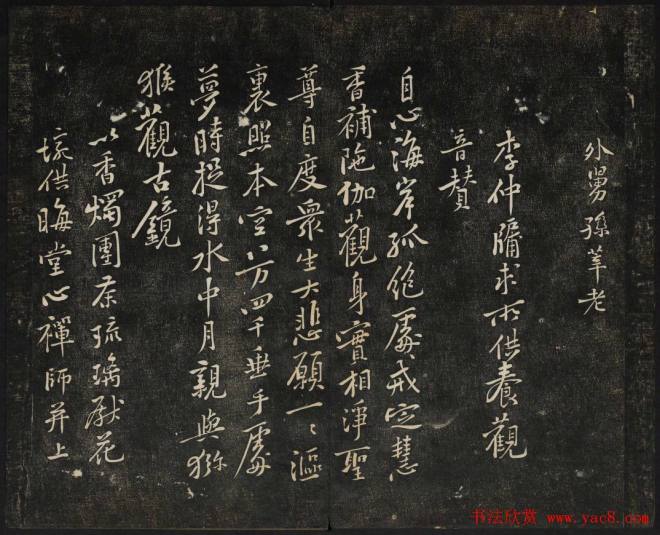 外舅孫莘老
李仲牖求所供養觀
音賛
自心海岸孤絶處戒定慧
香補陁伽觀身實相淨聖
尊自度衆生大悲願一〻漚
裏照本空八万四千垂手處
夢時捉得水中月親與獼
猴觀古鏡
以香燭團茶琉璃献花
供晦堂心禪師并上
书法欣赏 www.yac8.com